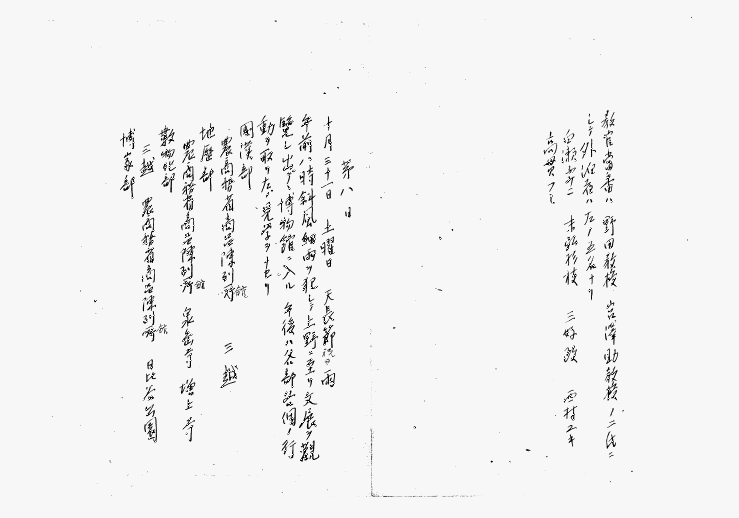 教官当番ハ 野田教授 宮澤助教授ノ二氏ニ
シテ外泊者ハ左ノ五名ナリ
白瀬 末弘杉枝 三好 西村ユキ
高貫フミ
第八日
十月三十一日 土曜日 天長節祝日 雨
午前八時斜風細雨ヲ犯シテ上野ニ至リ文展ヲ観
覧シ出デヽ博物館ニ入ル 午後ハ各部諸個ノ行
動ヲ取リ左ノ見学ヲナセリ
国漢部
農商務省商品陳列館 三越
地歴部
農商務省商品陳列館 泉岳寺 増上寺
数物化部
三越 農商務省商品陳列館 日比谷公園
博家部